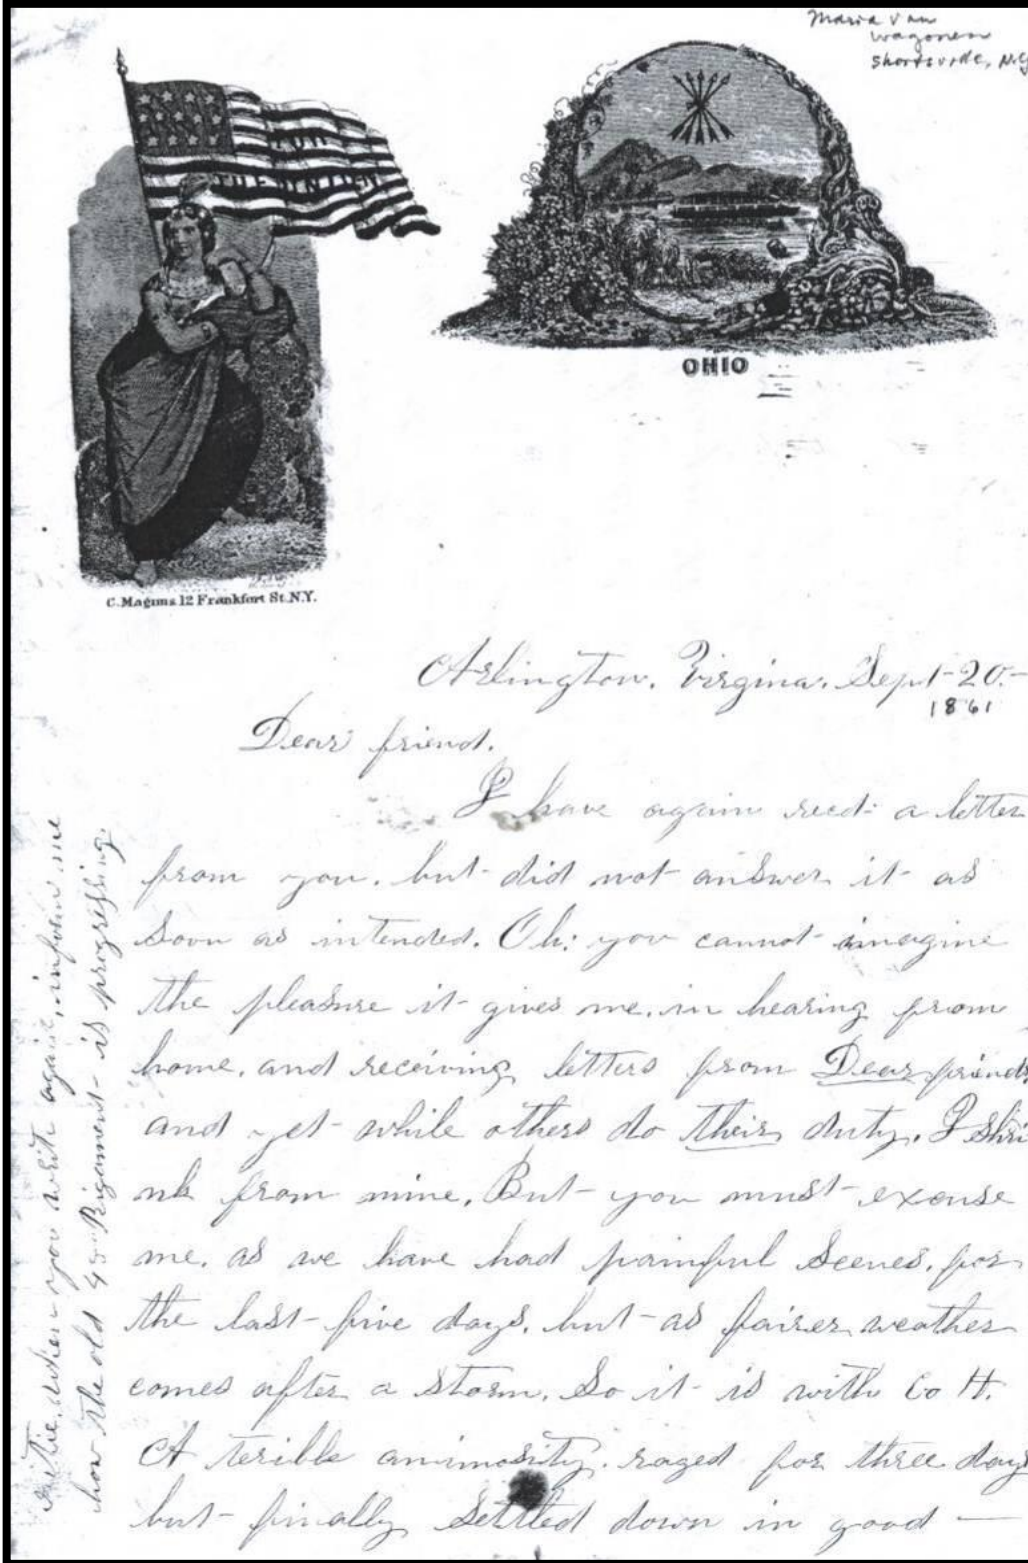 Maria Van
Wagonen
Shortsville, N.Y
FOR
THE UNION
OHIO
C. Magnus. 12 Frankfort St. N.Y.
Arlington. Virgina. Sept-20.-
1861
Dear friend.
I have again recd. a letter
from you. but did not answer it as
soon as intended. Oh: you cannot imagine
the pleasure it gives me. in hearing from
home. and receiving letters from Dear friends
and yet while others do their duty. I shri
nk from mine. But you must excuse
me. as we have had painful Scenes. for
the last five days. but as fairer weather
comes after a storm. So it is with Co H.
A terible animosity. raged for three days
but finally settled down in good —
when you write again, inform me
how the old Rigament is progressing.